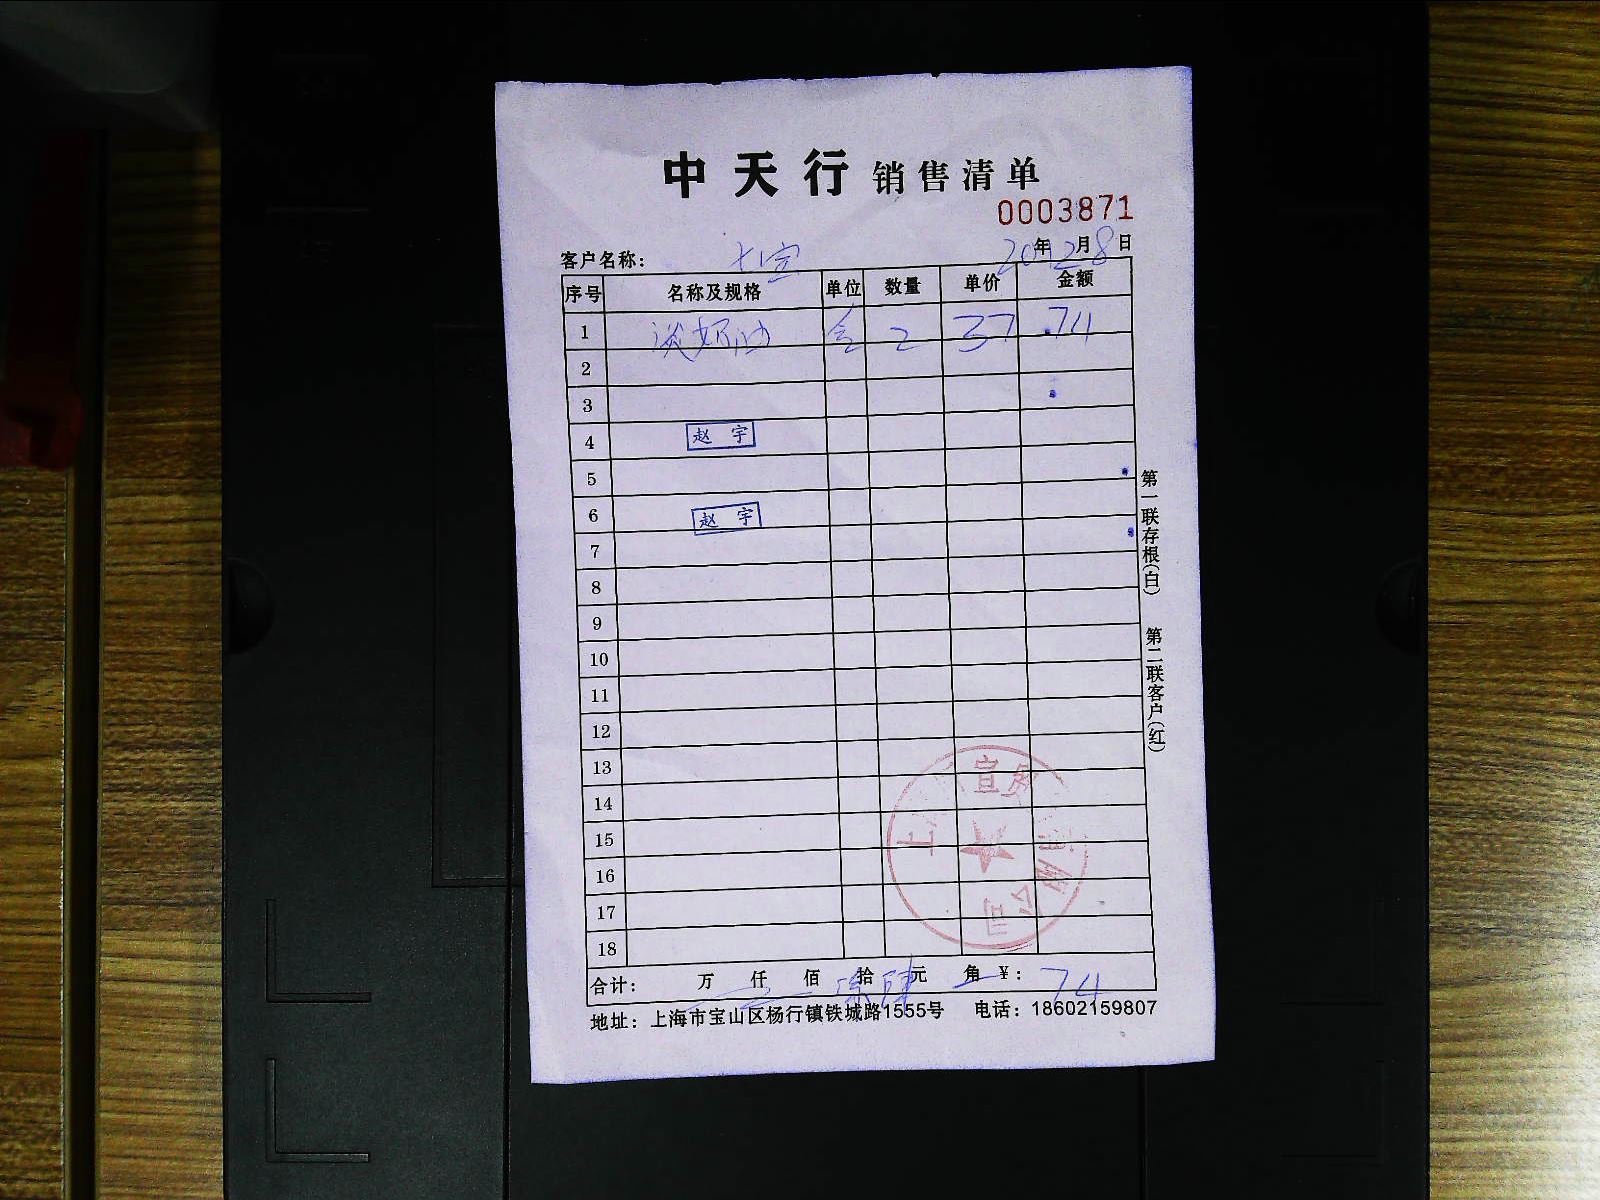 中天行 销售清单
0003871
客户名称： 七宝 年 月 8 日
序号 名称及规格 单位 数量 单价 金额
1 淡奶油 盒 2 37 74
2
3
4 赵宇
5
6 赵宇
7
8
9
10
11
12
13
14
15
16
17
18
合计： 万 仟 佰 拾 元 角 ¥： 74
地址：上海市宝山区杨行镇铁城路1555号 电话：18602159807
第一联存根(白) 第二联客户(红)